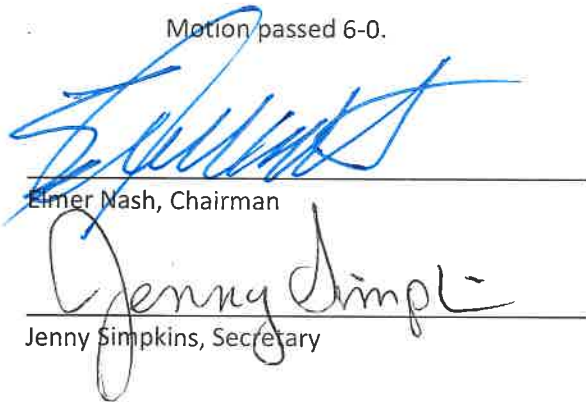 Motion passed 6-0.
Elmer Nash, Chairman
Jenny Simp
Jenny Simpkins, Secretary